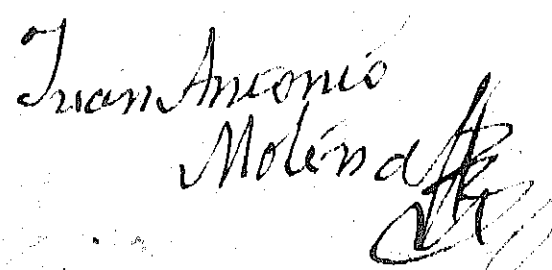 Juan Antonio
Molina